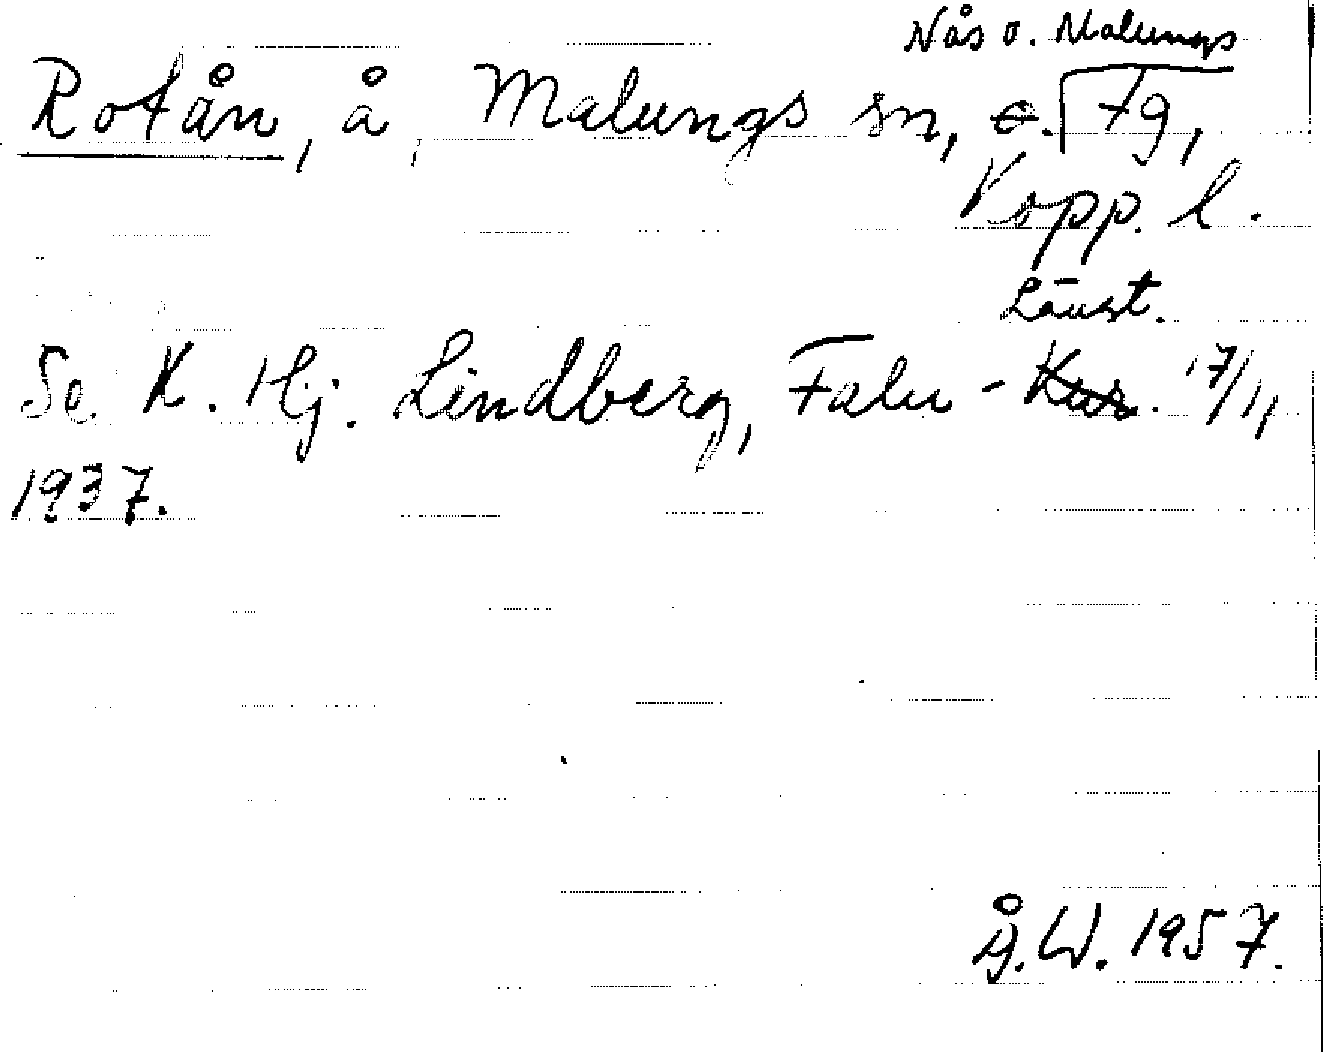 Nås o. Malungs
Rotån, å, Malungs sn, fg,
Kopp. l.
Länst.
Se K. Hj. Lindberg, Falu - Kur. 17/11
1937.
Å.W. 1957.